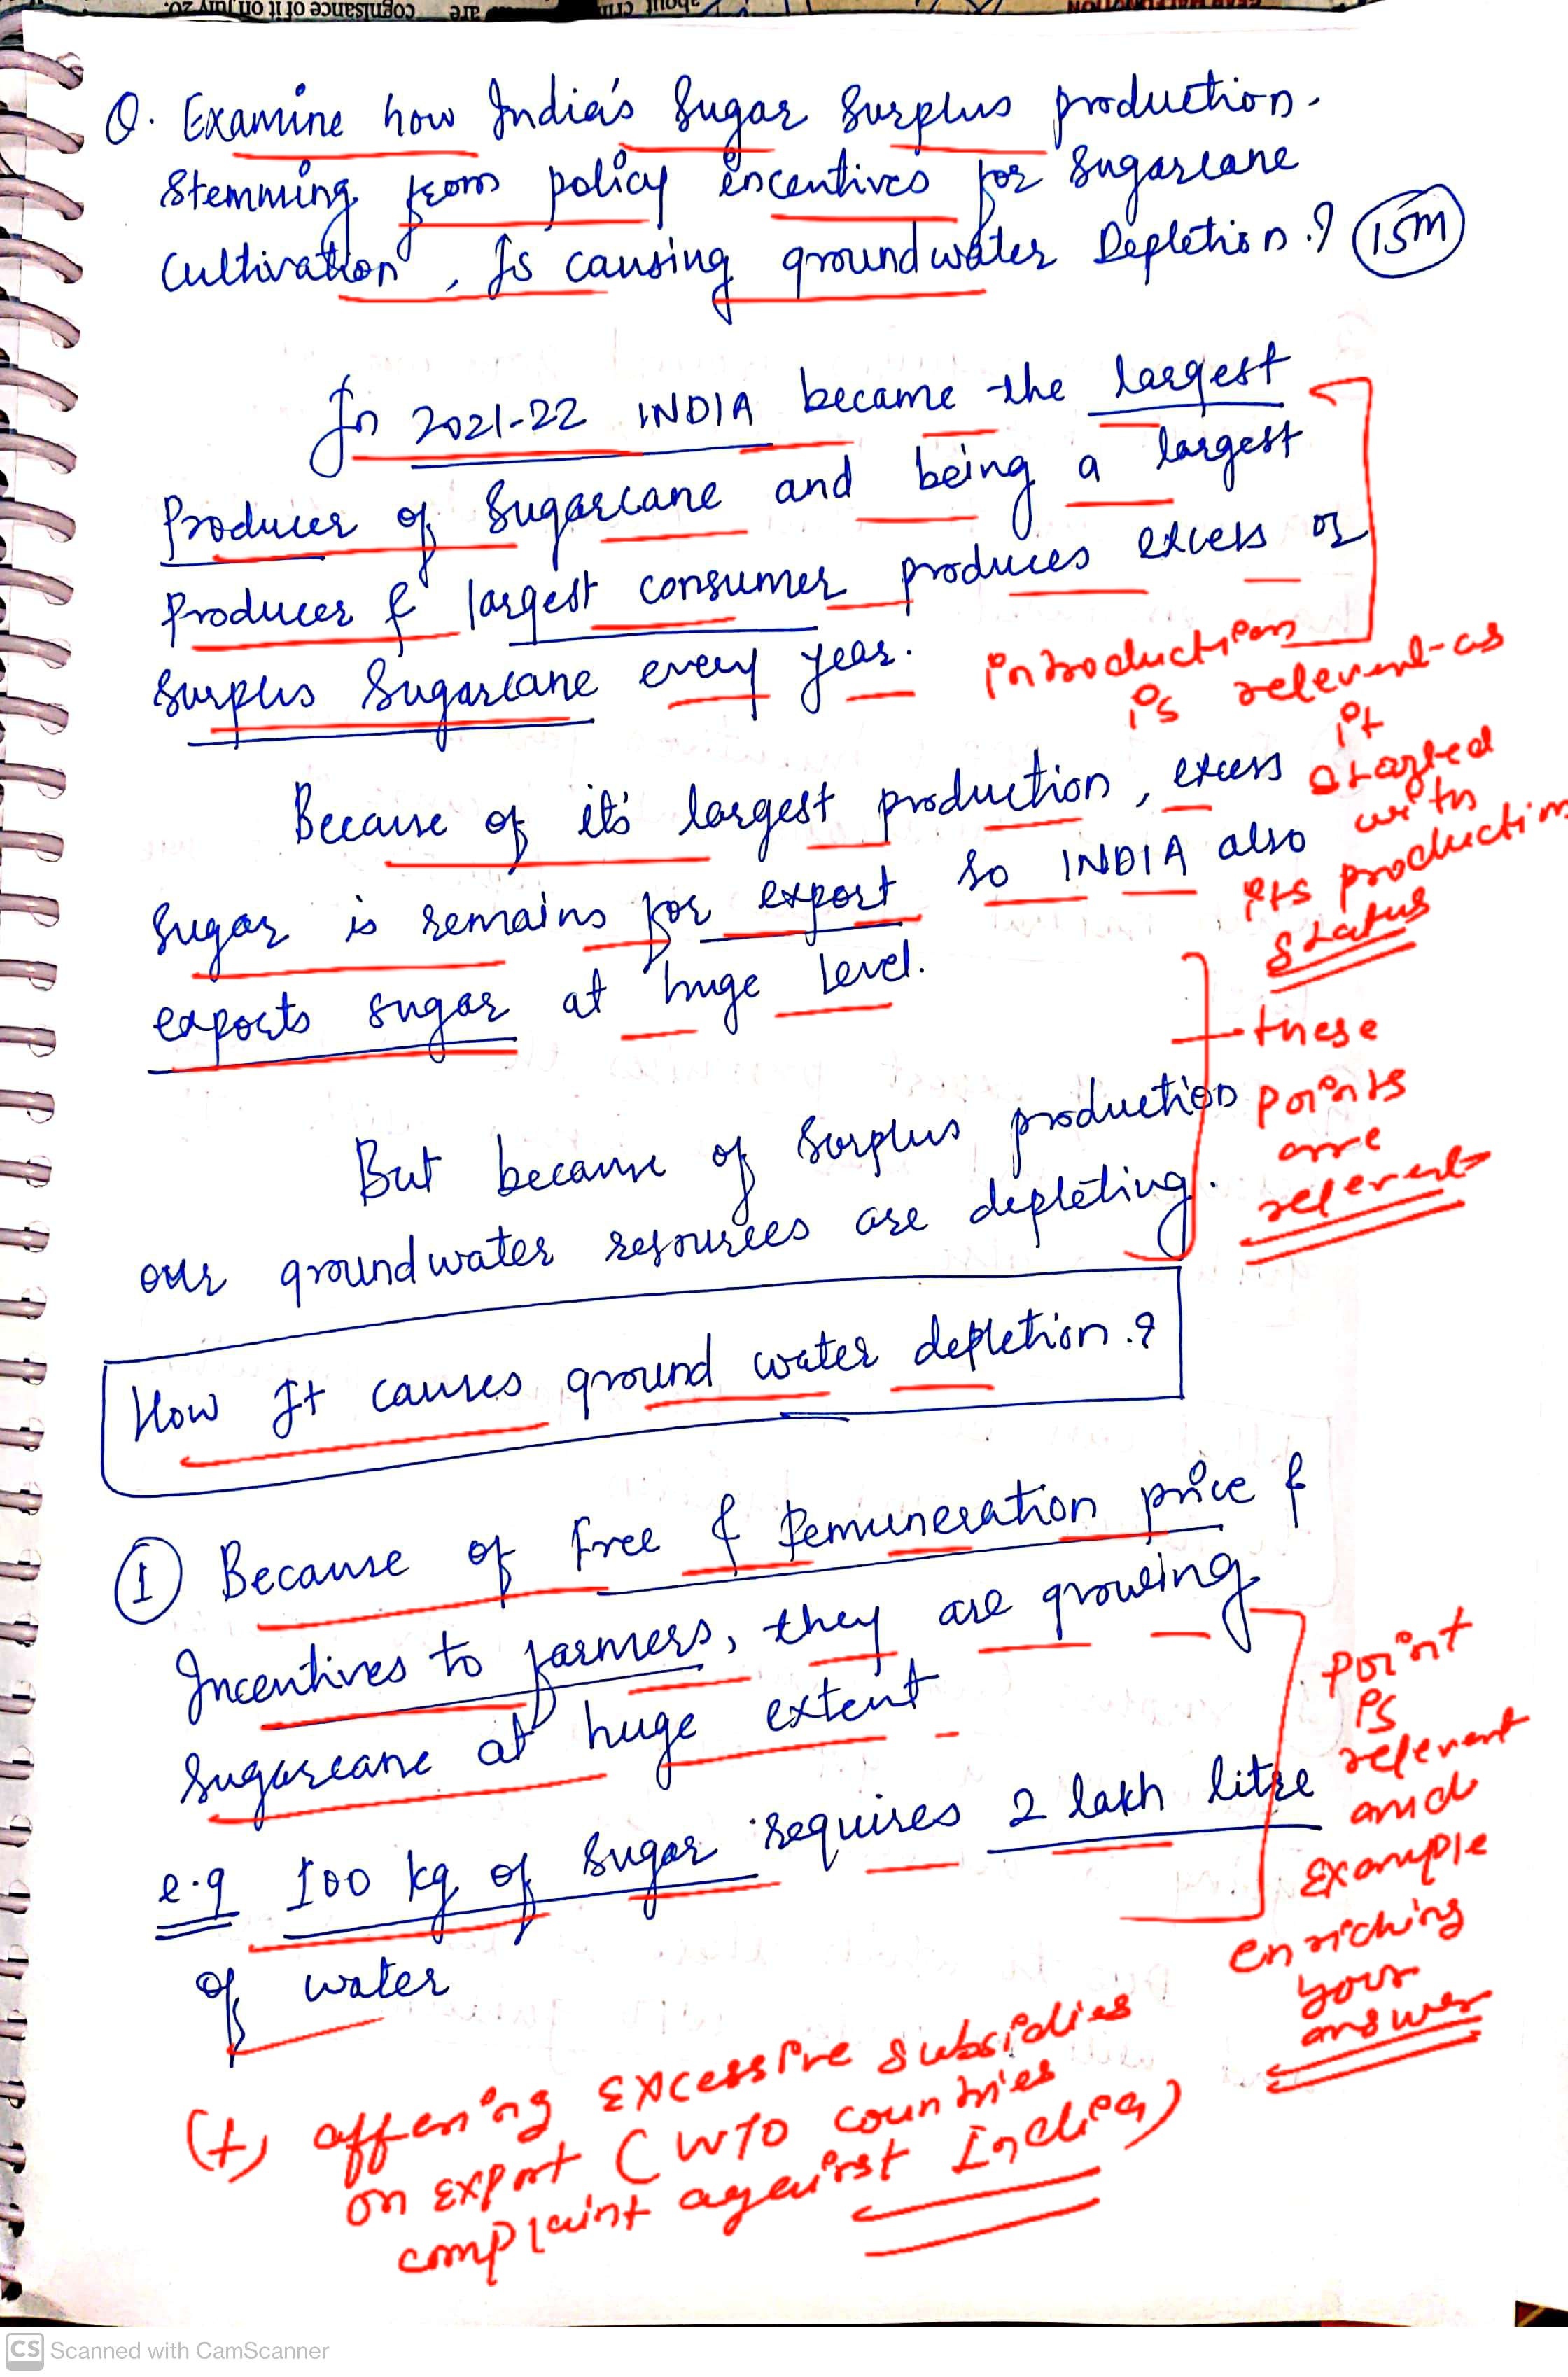 cognisance of it on July 20.
are
about
Q. Examine how India's Sugar Surplus production.
Stemming from policy incentives for Sugarcane
Cultivation, Is causing groundwater Depletion.? 15m
In 2021-22 INDIA became the largest
Producer of Sugarcane and being a largest
Producer & largest consumer produces excess or
Surplus Sugarcane every year.
introduction
is relevent as
it
started
with
its production
status
Because of it's largest production, excess
Sugar is remains for export so INDIA also
exports sugar at huge level.
But because of Surplus production
our groundwater resources are depleting.
these
points
are
relevent
How It causes ground water depletion.?
1 Because of Free & Remuneration price &
Incentives to farmers, they are growing
Sugarcane at huge extent.
e.g 100 kg of Sugar requires 2 lakh litre
of water
point
is
relevent
and
Example
enriching
your
answer
(+) offering Excessive subsidies
on Export (WTO countries
complaint against India)
CS Scanned with CamScanner